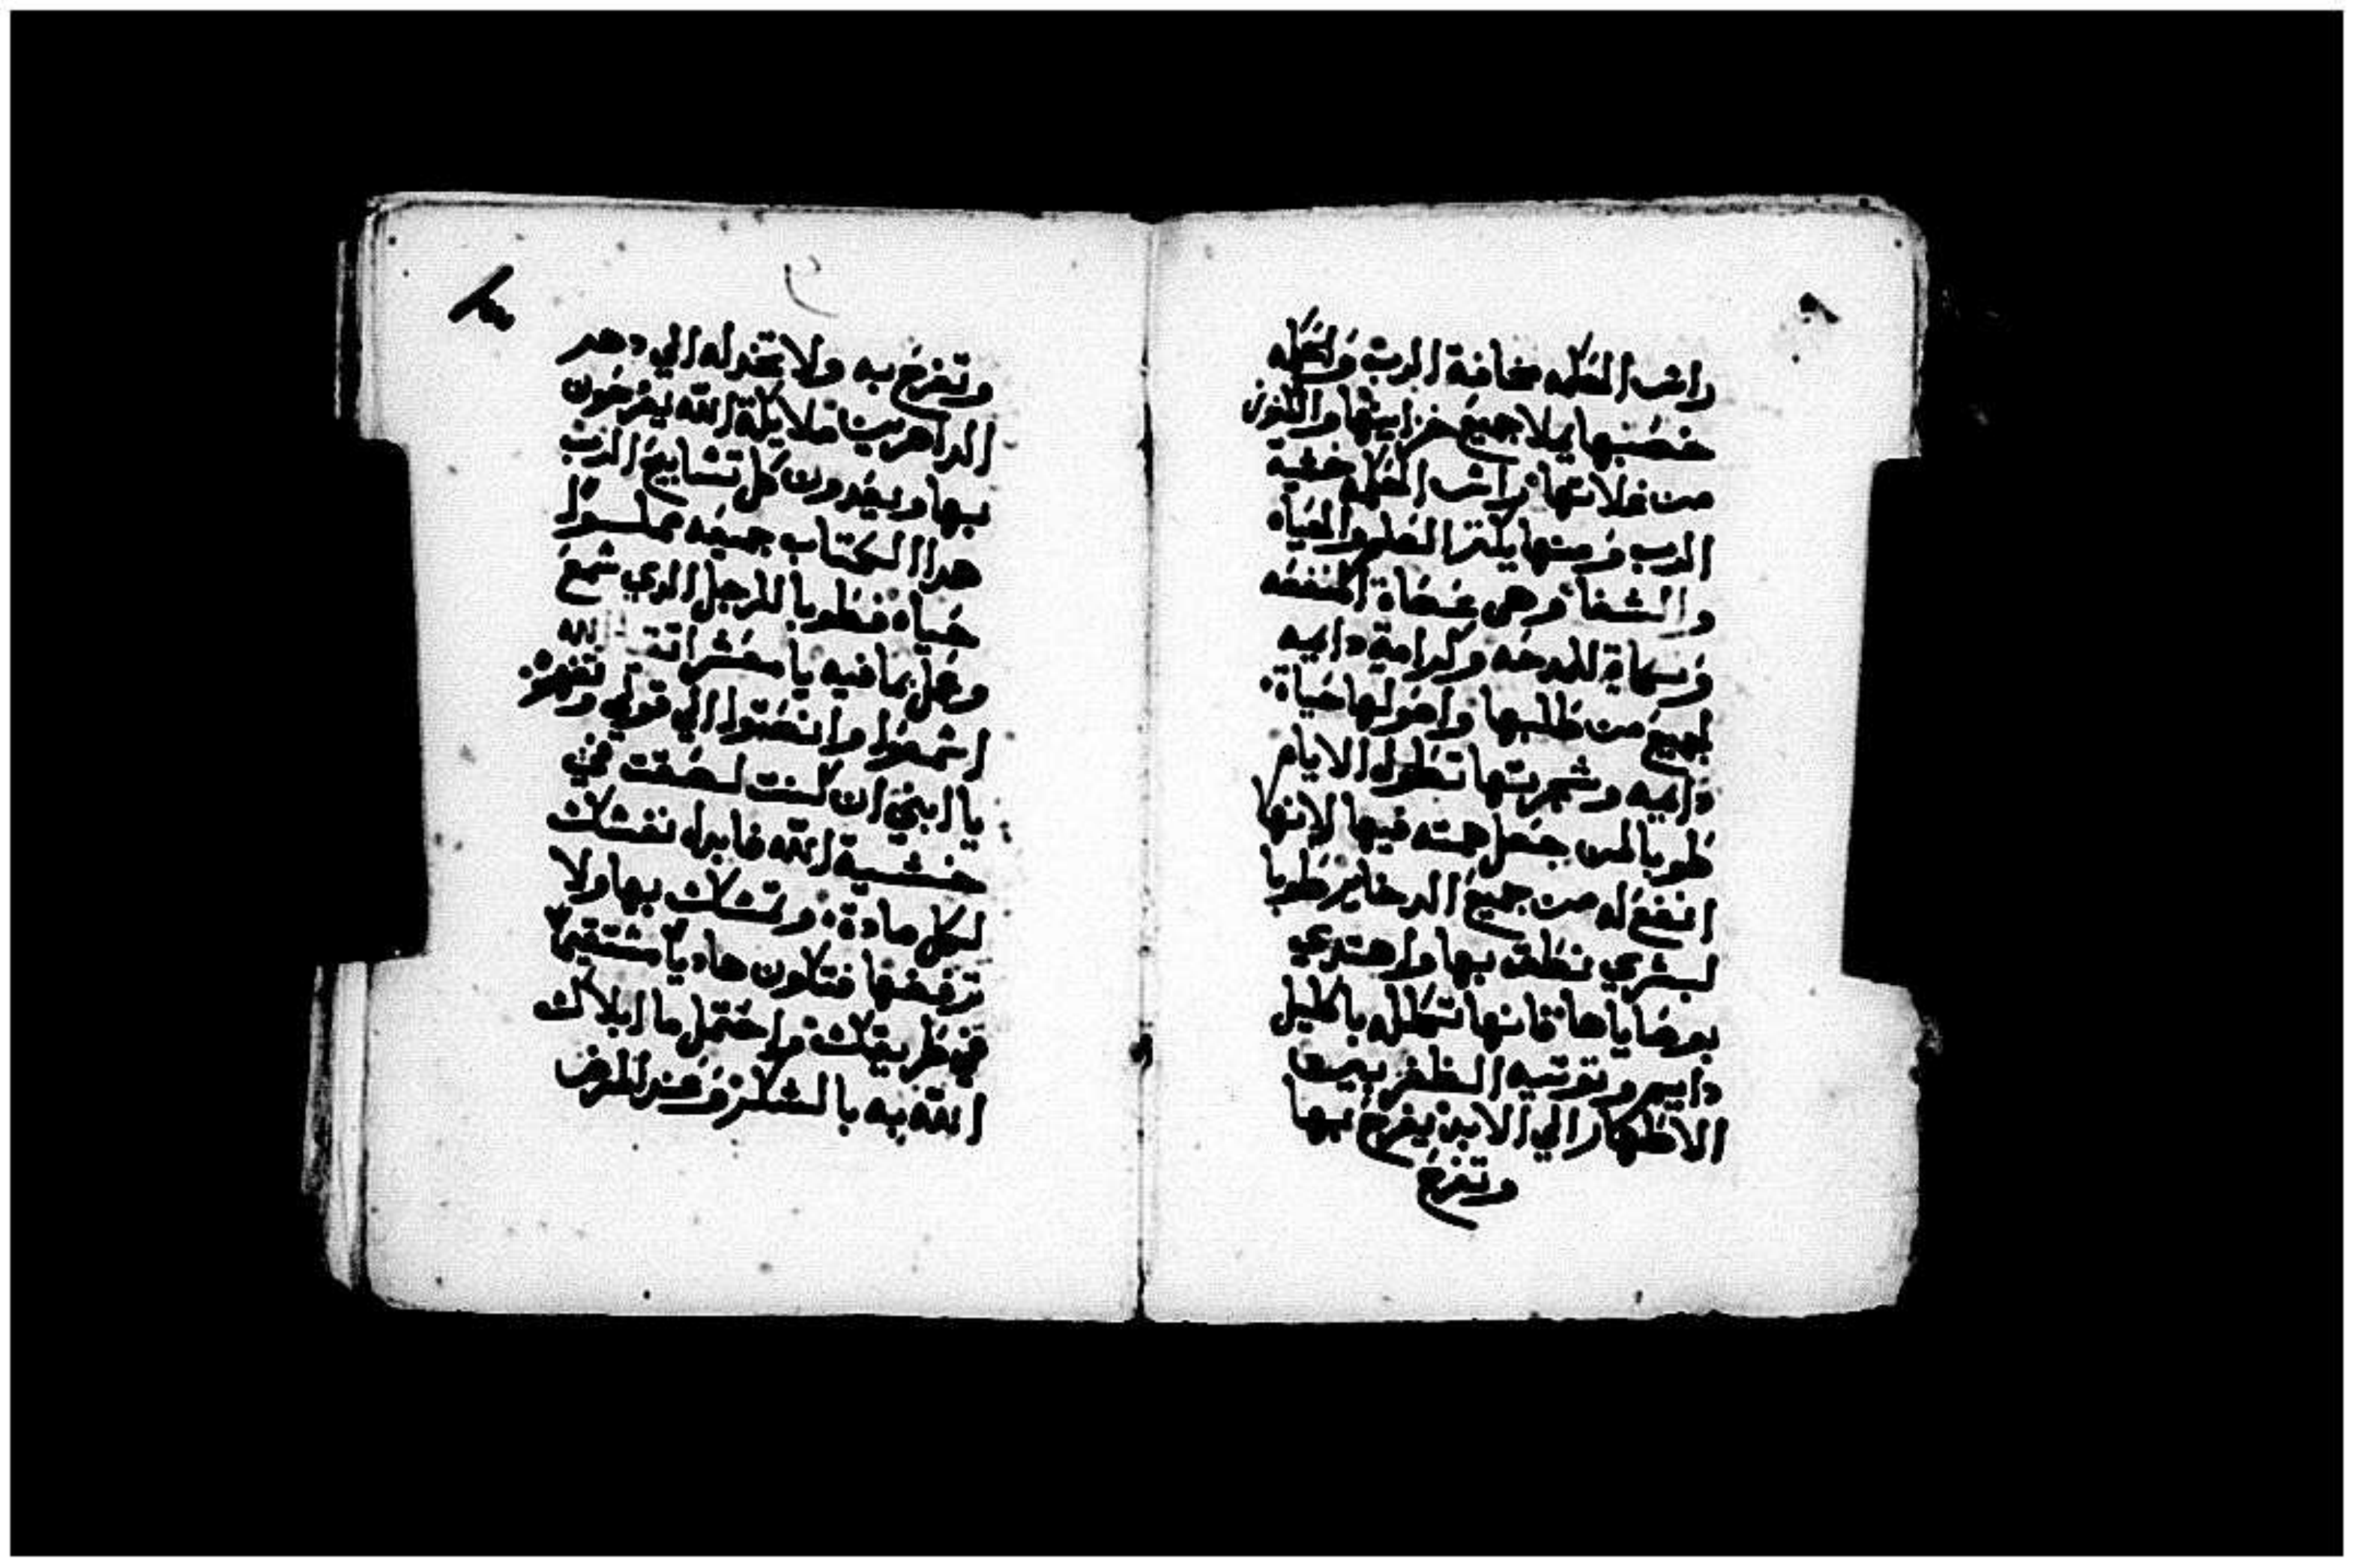 راش الحكمه مخافة الرب ولحكمه
خصبها يملا جميع خزاينها والكنوز
من غلاتها راش الحكمه خشية
الرب ومنها يكتر العلم والحياه
والشفا وهي عصاة المنفعه
وسكاة للمدحه وكرامة دايمه
لجميع من طلبها واصولها حياة
دايمه وشجرتها تطول الايام
طوبا لمن جعل همته فيها لانها
انفع له من جميع الدخاير طوبا
لبشري نطق بها واهتدي
بوصاياها فانها تكلله باكليل
دايم وتوتيه الظفر بيوم
الاظهار الي الابد يفرح بها
وتفرح
وتفرح به ولا تخدله الي دهر
الداهرين ملايكة الله يفرحون
بها ويعدون كل تشابيح الرب
هدا الكتاب جميعه مملو
حياه فطوبا للرجل الدي شمع
وعمل بما فيه يا معشر الله
اشمعوا وانصتوا الي قولي وتفهمو
يا ابني ان كنت لصقت في
خشية الله فابدل نفشك
لكل مادة وتمشك بها ولا
ترفضها فتكون هاديا مشتقيما
في طريقك واحتمل ما ابلاك
الله به بالشكر وعند المرض